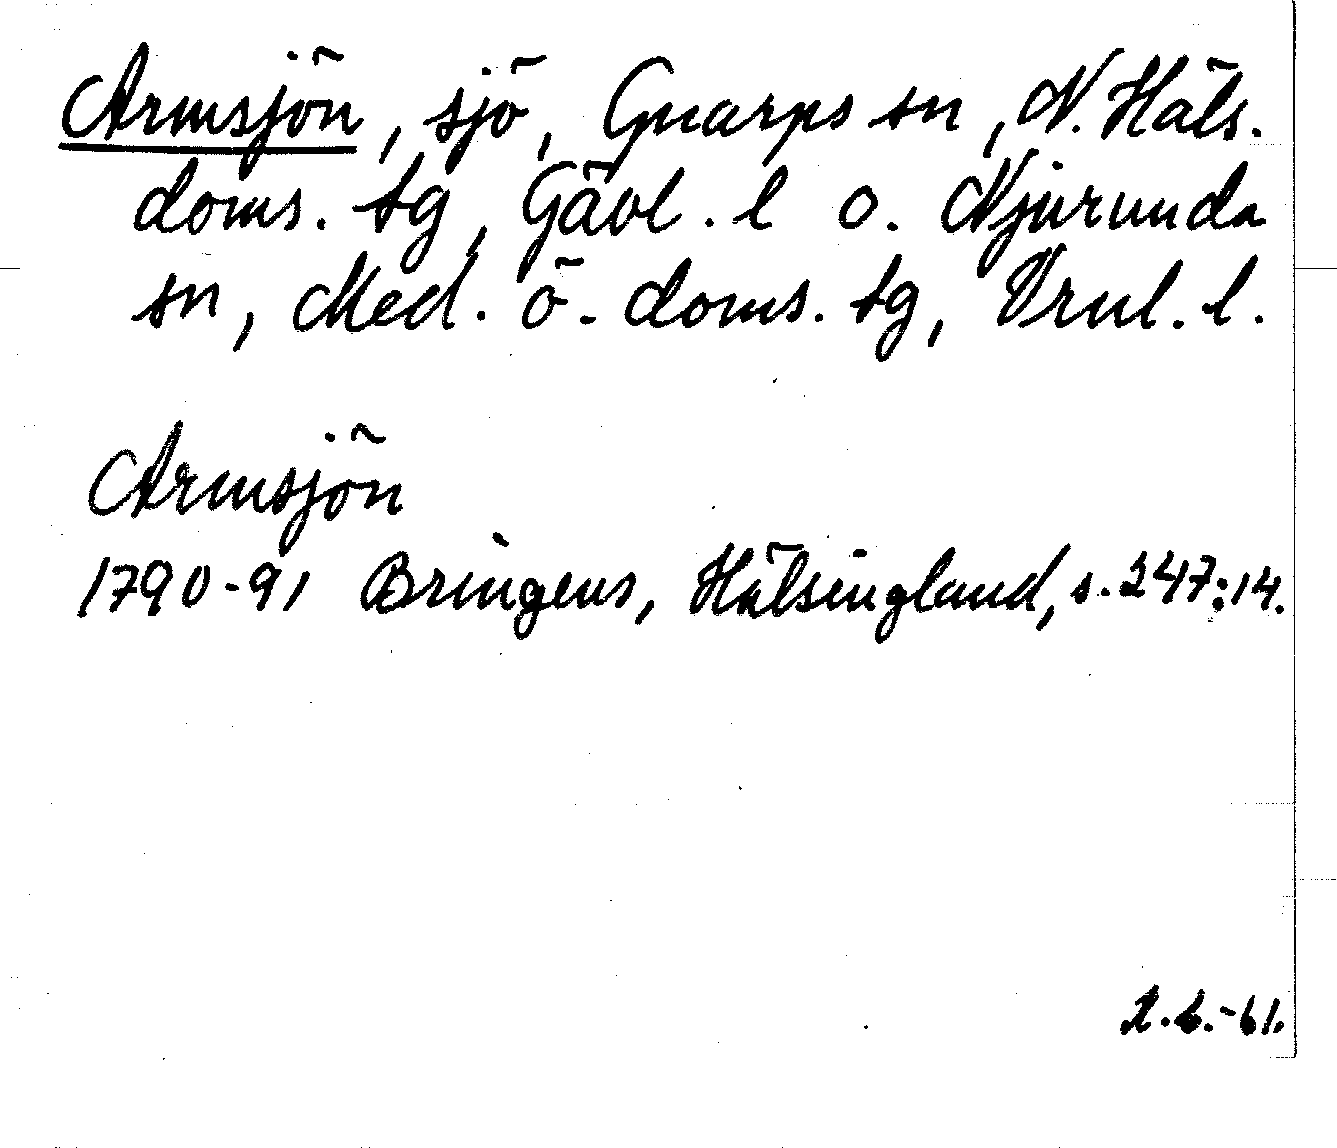 Armsjön, sjö, Gnarps sn, N. Häls.
doms. tg, Gävl. l o. Njurunda
sn, Med. ö. doms. tg, Vrnl. l.
Armsjön
1790-91 Bringéus, Hälsingland, s. 247:14.